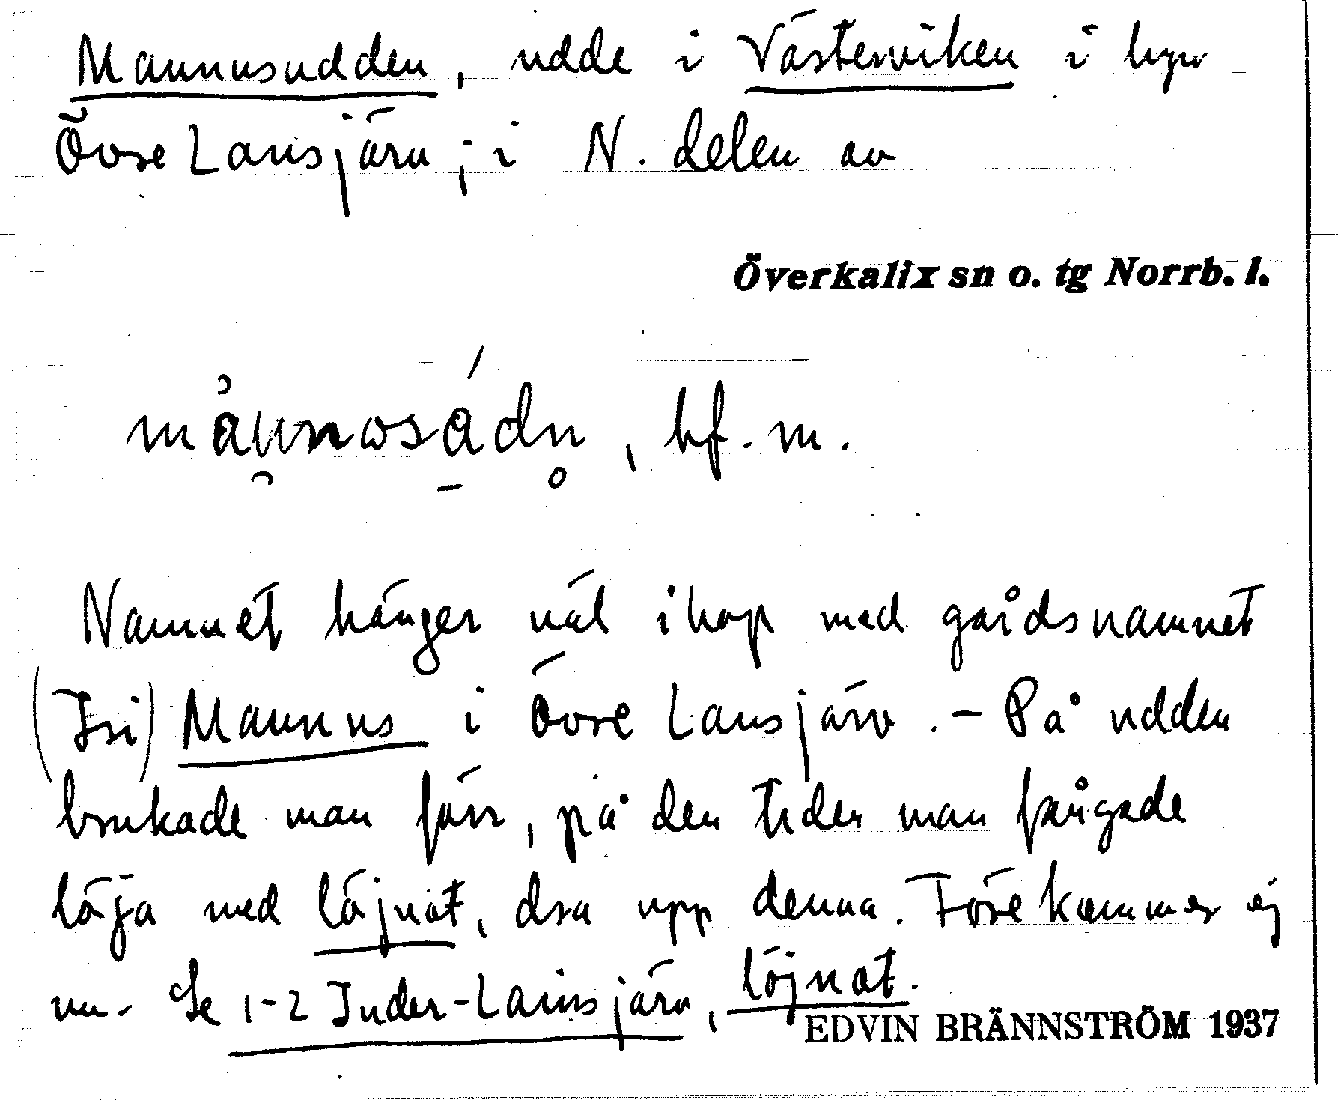 Mannusudden, udde i Västerviken i byn
Övre Lansjärv; i N. delen av
Överkalix sn o. tg Norrb. l.
bf. m.
Namnet hänger väl ihop med gårdsnamnet
(Isi) Mannus i Övre Lansjärv. - På udden
brukade man förr, på den tiden man fångade
löja med löjnot, dra upp denna. Förekommer ej
nu. Se 1-2 Inder-Lansjärv, löjnot.
EDVIN BRÄNNSTRÖM 1937